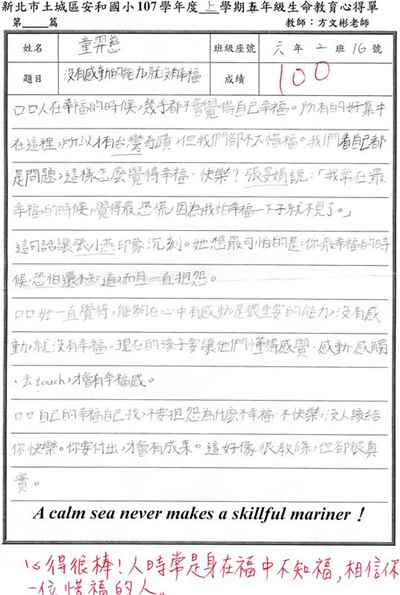 新北市土城區安和國小107學年度上學期五年級生命教育心得單
第 篇
教師：方文彬老師
姓名 童羿慈 班級座號 六年2班16號
題目 沒有感動的能力就沒有幸福 成績 100
□□人在幸福的時候，幾乎都不會覺得自己幸福。所有的好集中
在這裡，所以才有台灣奇蹟，但我們卻不大惜福。我們看自己都
是問題，這樣怎麼覺得幸福、快樂？張孝娟說：「我常在最
幸福的時候，覺得最恐慌，因為我怕幸福一下子就不見了。」
這句話讓 小燕印象沉刻。她想最可怕的是：你最幸福的時
候，恐怕還不知道，而且一直抱怨。
□□她一直覺得，能夠在心中有感動是很重要的能力，沒有感
動，就沒有幸福。現在的孩子要讓他們懂得感覺、感動、感觸
、去touch，才會有幸福感。
□□自己的幸福自己找，不要抱怨為什麼不幸福、不快樂，沒人該給
你快樂。你要付出，才會有成果。這好像很教條，但卻很真
實。
A calm sea never makes a skillful mariner！
心得很棒！人時常是身在福中不知福，相信你
一位惜福的人。